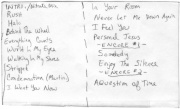 Intro / Whatulike
Rush
Halo
Behind The Wheel
Everything Counts
World In My Eyes
Walking In My Shoes
Stripped
Condemnation (Martin)
I Want You Now
In Your Room
Never Let Me Down Again
I Feel You
Personal Jesus
- ENCORE #1 -
Somebody
Enjoy The Silence
- ENCORE #2 -
A Question of Time